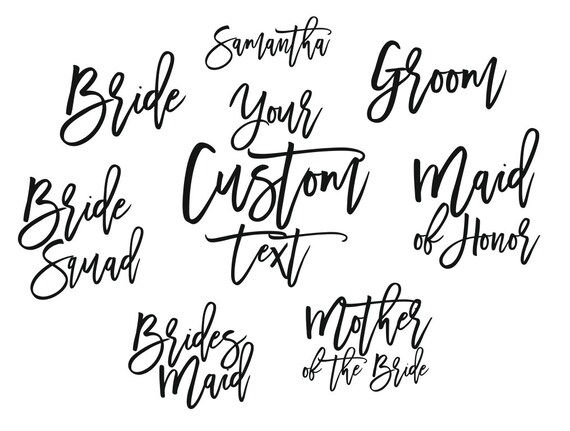 Samantha
Bride
Groom
Your
Custom
text
Maid
of Honor
Bride
Squad
Brides
Maid
Mother
of the Bride